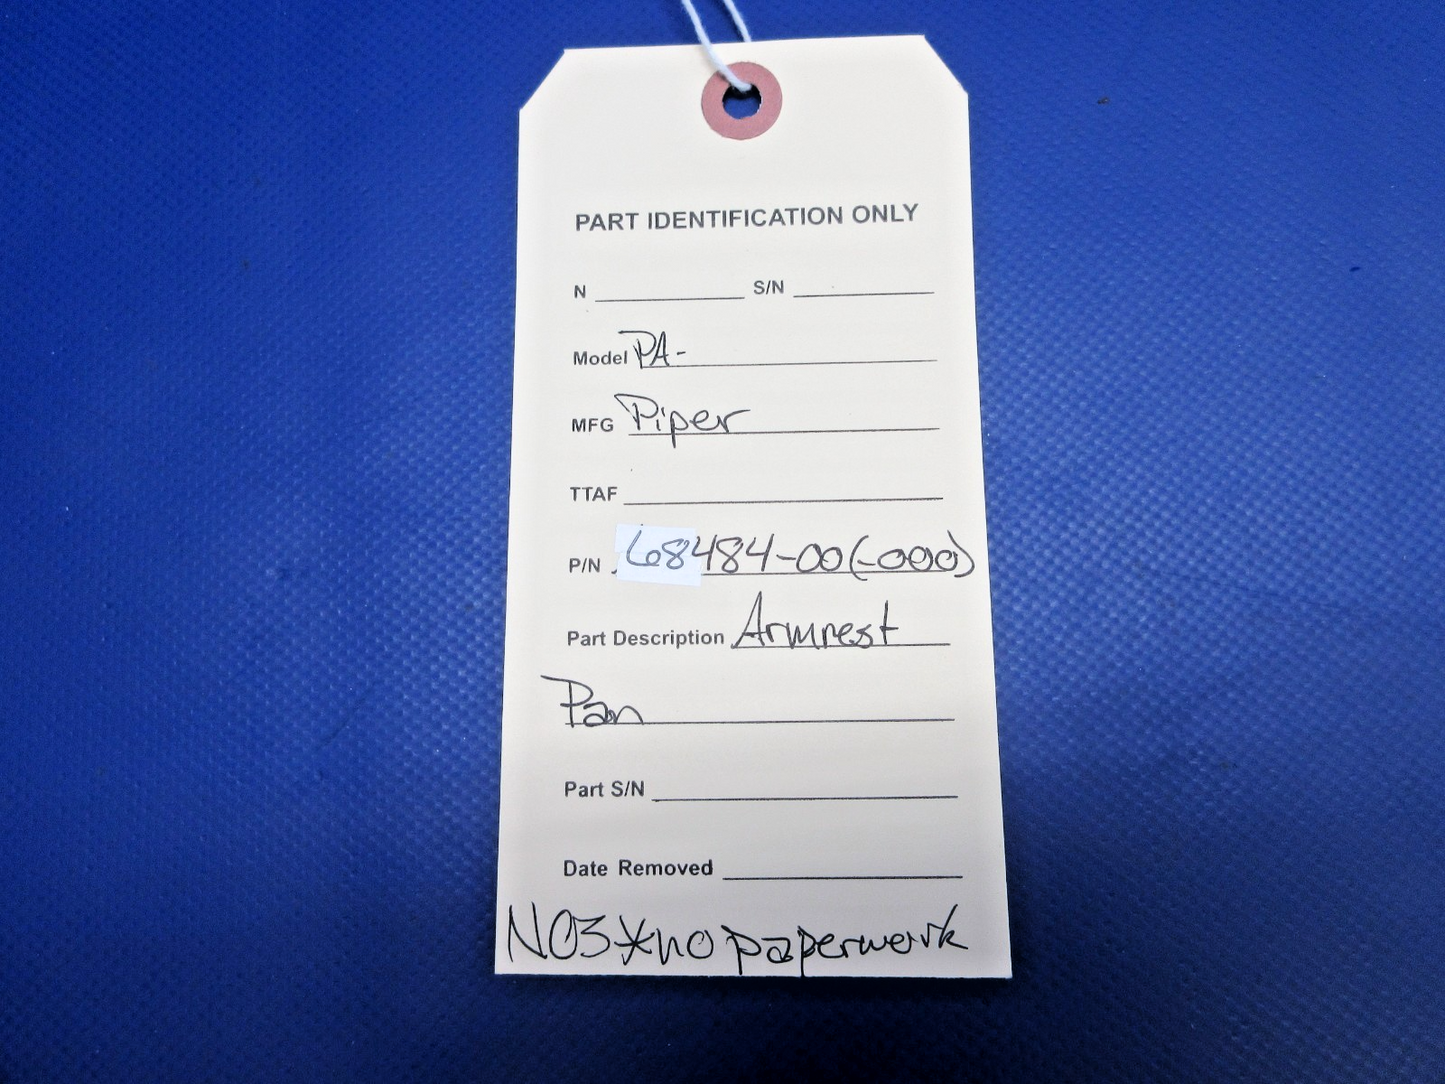 PART IDENTIFICATION ONLY
N S/N
Model PA-
MFG Piper
TTAF
P/N 68484-00(-000)
Part Description Armrest
Pan
Part S/N
Date Removed
NO3*no paperwork